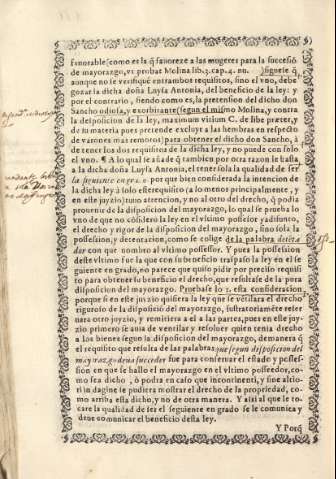 fauorable (como es la q̃ fauorece a las mugeres para la successiõ
de mayorazgo, vt probat Molina lib.3. cap.4. nu. ) siguese q̃,
aunque no se verifiquẽ entrambos requisitos, sino el vno, debe
gozar la dicha doña Luysa Antonia, del beneficio de la ley: y
por el contrario, siendo como es, la pretension del dicho don
Sancho odiosa, y exorbitante (segun el mismo Molina, y contra
la disposicion de la ley, maximum virium C. de libe præter,
de tu materia pues pretende excluyr a las hembras en respecto
de varones mas remotos) para obtener el dicho don Sancho, à
de tener los dos requisitos de la dicha ley, y no puede con solo
el vno. ¶ A lo qual se añade q̃ tambien por otra razon le basta
a la dicha doña Luysa Antonia, el tener sola la qualidad de ser
la siguiente en grado por que bien considerada la intencion de
la dicha ley à solo este requisito (a lo menos principalmente, y
en este juyzio) tuuo attencion, y no al otro del drecho, q̃ podia
prouenir de la disposicion del mayorazgo, lo qual se prueba lo
vno de que no cõsidero la ley en el vltimo possessor y adfunto,
el drecho y rigor de la disposicion del mayorazgo, sino sola la
possession, y detentacion, como se colige de la palabra
dor con que nombro al vltimo possessor. Y pues la possession
deste vltimo fue la que con su beneficio traspaso la ley en el se
guiente en grado, no parece que quiso pidir por preciso requisi
to para obtener su beneficio el drecho, que resultase de la pura
disposicion del mayorazgo. Pruebase lo 2. esta consideracion,
porque si en este juizio quisiera la ley que se vẽtilara el drecho
riguroso de la disposiciõ del mayorazgo, frustatoriamẽte reser
uara otro juyzio, y remitiera a el a las partes, pues en este juy-
zio primero se auia de ventilar y resoluer quien tenia drecho
a los bienes segun la disposicion del mayorazgo, demanera q̃
el requisito que resulta de las palabras, que segun disposicion del
mayorazgo deua succeder fue para conseruar el estado y posses-
sion en que se hallo el mayorazgo en el vltimo posseedor, co-
mo sea dicho, ò podra en caso que incontinenti, y sine altio-
ri indagine se pudiera mostrar el drecho de la propriedad, co-
mo arriba esta dicho, y no de otra manera. Y assi al que le to-
care la qualidad de ser el seguiente en grado se le comunica y
deue comunicar el beneficio desta ley.
Y Porq̃